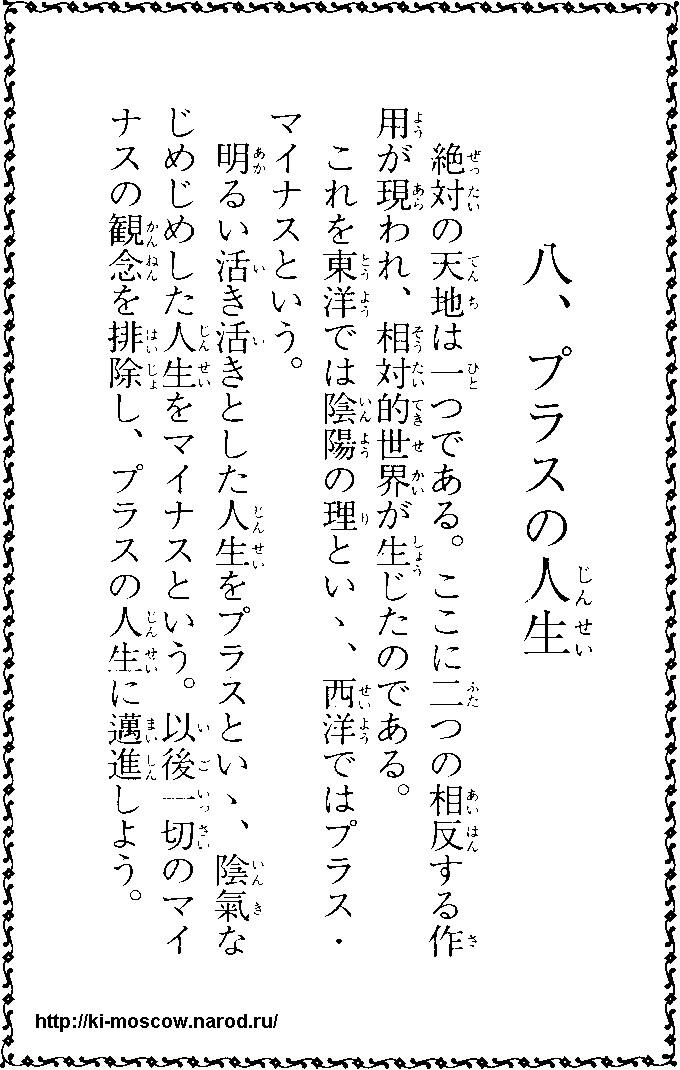 八、プラスの人生
絶対の天地は一つである。ここに二つの相反する作
用が現われ、相対的世界が生じたのである。
これを東洋では陰陽の理といゝ、西洋ではプラス・
マイナスという。
明るい活き活きとした人生をプラスといゝ、陰氣な
じめじめした人生をマイナスという。以後一切のマイ
ナスの観念を排除し、プラスの人生に邁進しよう。
http://ki-moscow.narod.ru/